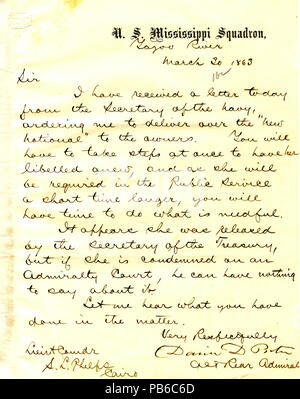 U. S. Mississippi Squadron,
Yazoo River
March 20 1863
Sir
I have received a letter today
from the Secretary of the navy,
ordering me to deliver over the "New
National" to the owners. You will
have to take steps at once to have her
libelled anew, and as she will
be required in the Public Service
a short time longer, you will
have time to do what is needful.
It appears she was released
by the Secretary of the Treasury,
but if she is condemned an an
Admiralty Court, he can have nothing
to say about it.
Let me hear what you have
done in the matter.
Very Respectfully
David D Porter
Act Rear Admiral
Lieut Comdr
S. L. Phelps
Cairo
alamy
alamy stock photo
PB6C6D